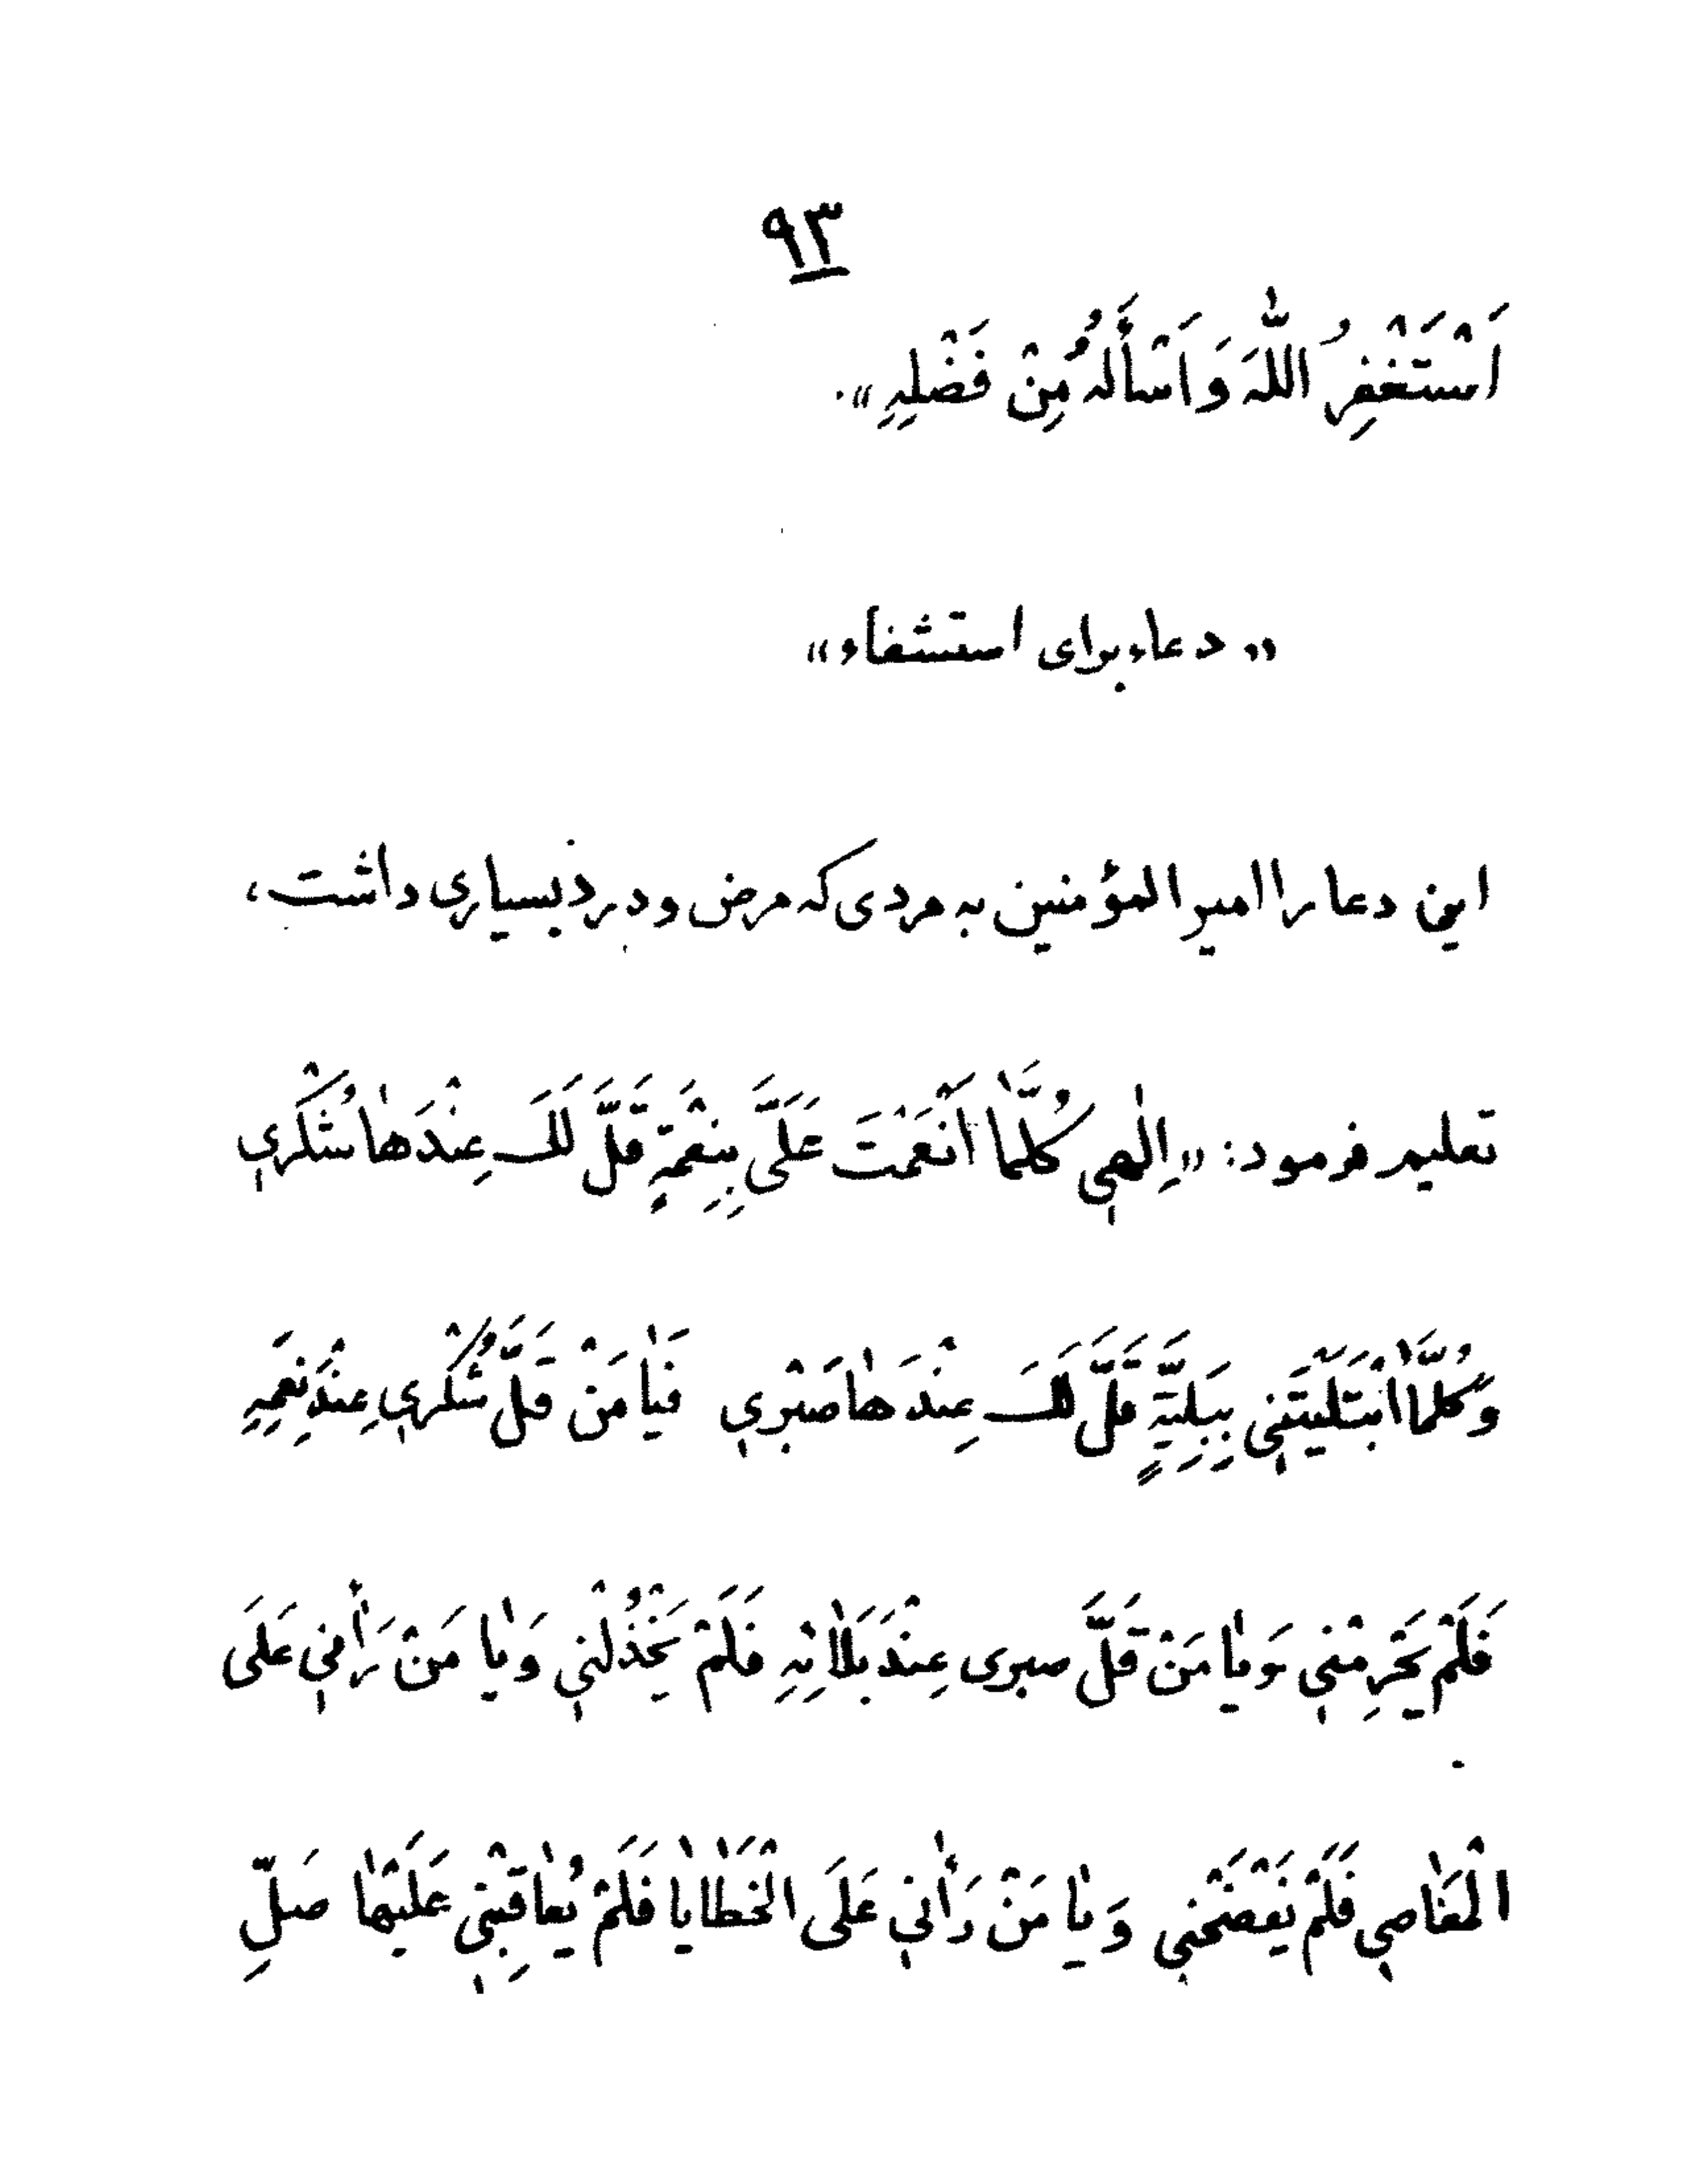 ۹۳
اَسْتَغْفِرُ اللّٰهَ وَ اَسْأَلُهُ مِنْ فَضْلِهِ».
«دعاء برای استشفاء»
این دعا را امیر المؤمنین به مردی که مرض و درد بسیاری داشت،
تعلیم فرمود: «اِلٰهي كُلَّمٰا اَنْعَمْتَ عَلَيَّ بِنِعْمَةٍ قَلَّ لَكَ عِنْدَهٰا شُكْرِي
وَ كُلَّمَا ابْتَلَيْتَنِي بِبَلِيَّةٍ قَلَّ لَكَ عِنْدَهٰا صَبْرِي فَيٰا مَنْ قَلَّ شُكْرِي عِنْدَ نِعَمِهِ
فَلَمْ يَحْرِمْنِي وَ يٰا مَنْ قَلَّ صبرى عِنْدَ بَلاٰئِهِ فَلَمْ يَخْذُلْنِي وَ يٰا مَنْ رَاٰنِي عَلَى
الْمَعٰاصِي فَلَمْ يَفْضَحْنِي وَ يٰا مَنْ رَاٰنِي عَلَى الْخَطٰايٰا فَلَمْ يُعٰاقِبْنِي عَلَيْهٰا صَلِّ